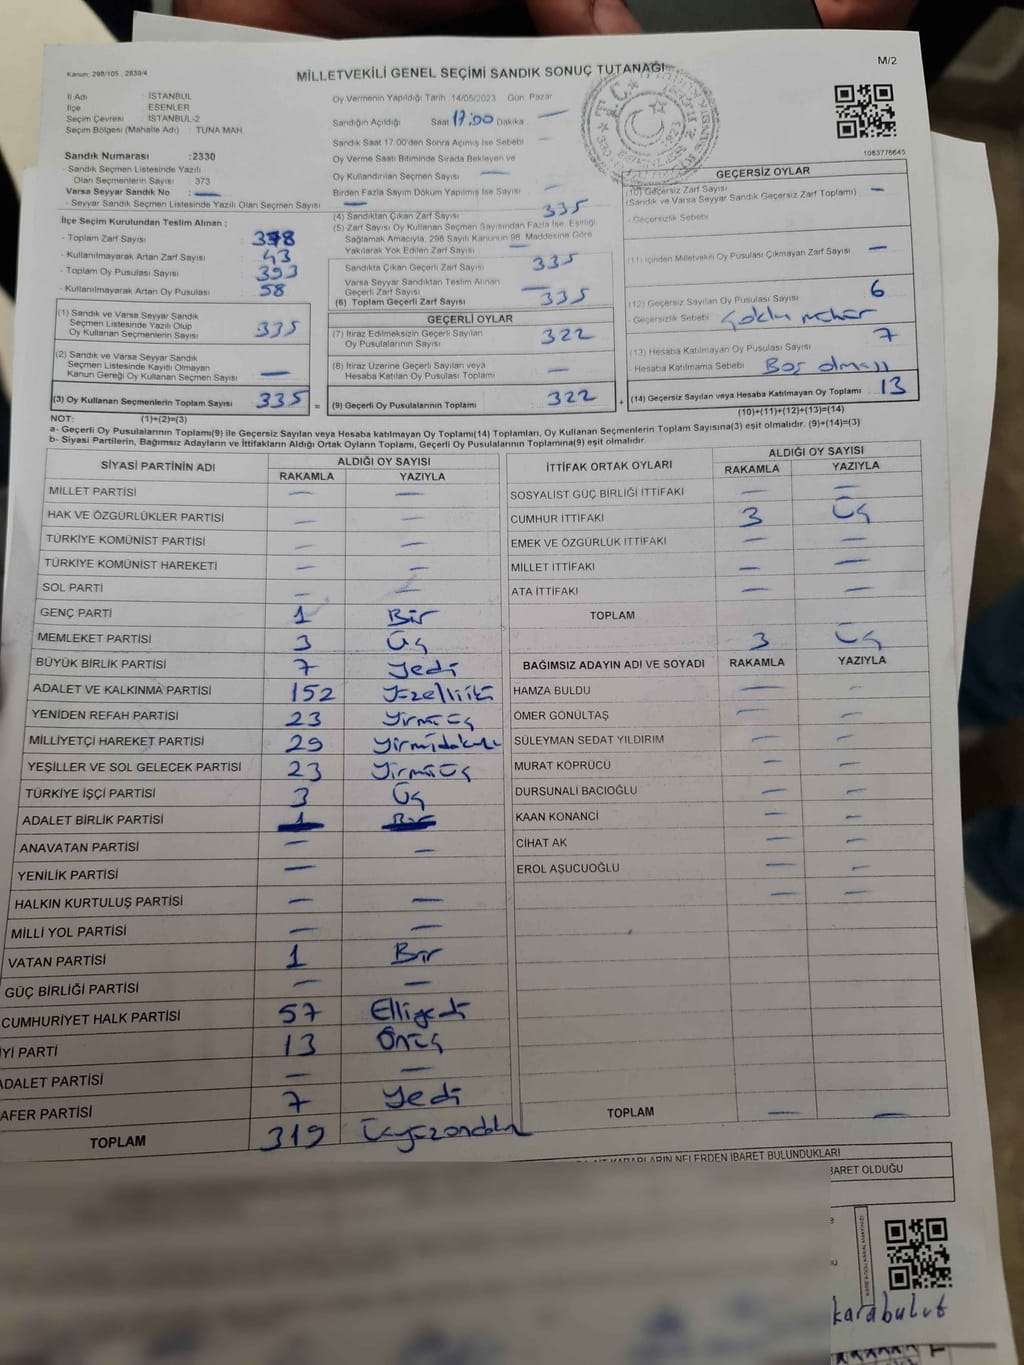 M/2
Kanun, 298/105 , 2839/4
MİLLETVEKİLİ GENEL SEÇİMİ SANDIK SONUÇ TUTANAĞI
İl Adı : İSTANBUL
İlçe : ESENLER
Seçim Çevresi : İSTANBUL-2
Seçim Bölgesi (Mahalle Adı) : TUNA MAH.
Sandık Numarası :2330
- Sandık Seçmen Listesinde Yazılı
Olan Seçmenlerin Sayısı : 373
Varsa Seyyar Sandık No : —
- Seyyar Sandık Seçmen Listesinde Yazılı Olan Seçmen Sayısı : —
Oy Vermenin Yapıldığı Tarih 14/05/2023 Gün: Pazar
Sandığın Açıldığı Saat 17:00 Dakika —
Sandık Saat 17.00'den Sonra Açılmış İse Sebebi —
Oy Verme Saati Bitiminde Sırada Bekleyen ve
Oy Kullandırılan Seçmen Sayısı —
Birden Fazla Sayım Döküm Yapılmış İse Sayısı —
1083776645
İlçe Seçim Kurulundan Teslim Alınan ;
- Toplam Zarf Sayısı : 378
- Kullanılmayarak Artan Zarf Sayısı : 43
- Toplam Oy Pusulası Sayısı : 393
- Kullanılmayarak Artan Oy Pusulası : 58
(1) Sandık ve Varsa Seyyar Sandık
Seçmen Listesinde Yazılı Olup
Oy Kullanan Seçmenlerin Sayısı : 335
(2) Sandık ve Varsa Seyyar Sandık
Seçmen Listesinde Kayıtlı Olmayan
Kanun Gereği Oy Kullanan Seçmen Sayısı : —
(3) Oy Kullanan Seçmenlerin Toplam Sayısı : 335
(1)+(2)=(3)
(4) Sandıktan Çıkan Zarf Sayısı : 335
(5) Zarf Sayısı Oy Kullanan Seçmen Sayısından Fazla İse, Eşitliği
Sağlamak Amacıyla, 298 Sayılı Kanunun 98. Maddesine Göre
Yakılarak Yok Edilen Zarf Sayısı : —
Sandıkta Çıkan Geçerli Zarf Sayısı : 335
Varsa Seyyar Sandıktan Teslim Alınan
Geçerli Zarf Sayısı : —
(6) Toplam Geçerli Zarf Sayısı : 335
GEÇERLİ OYLAR
(7) İtiraz Edilmeksizin Geçerli Sayılan
Oy Pusulalarının Sayısı : 322
(8) İtiraz Üzerine Geçerli Sayılan veya
Hesaba Katılan Oy Pusulası Toplamı : —
= (9) Geçerli Oy Pusulalarının Toplamı : 322
+
GEÇERSİZ OYLAR
(10) Geçersiz Zarf Sayısı
(Sandık ve Varsa Seyyar Sandık Geçersiz Zarf Toplamı) —
- Geçersizlik Sebebi :
(11) İçinden Milletvekili Oy Pusulası Çıkmayan Zarf Sayısı —
(12) Geçersiz Sayılan Oy Pusulası Sayısı 6
- Geçersizlik Sebebi : Çoklu mühür
(13) Hesaba Katılmayan Oy Pusulası Sayısı 7
- Hesaba Katılmama Sebebi : Boş olması
(14) Geçersiz Sayılan veya Hesaba Katılmayan Oy Toplamı : 13
(10)+(11)+(12)+(13)=(14)
NOT:
a- Geçerli Oy Pusulalarının Toplamı(9) ile Geçersiz Sayılan veya Hesaba katılmayan Oy Toplamı(14) Toplamları, Oy Kullanan Seçmenlerin Toplam Sayısına(3) eşit olmalıdır. (9)+(14)=(3)
b- Siyasi Partilerin, Bağımsız Adayların ve İttifakların Aldığı Ortak Oyların Toplamı, Geçerli Oy Pusulalarının Toplamına(9) eşit olmalıdır.
SİYASİ PARTİNİN ADI ALDIĞI OY SAYISI
RAKAMLA YAZIYLA
MİLLET PARTİSİ — —
HAK VE ÖZGÜRLÜKLER PARTİSİ — —
TÜRKİYE KOMÜNİST PARTİSİ — —
TÜRKİYE KOMÜNİST HAREKETİ — —
SOL PARTİ — —
GENÇ PARTİ 1 Bir
MEMLEKET PARTİSİ 3 Üç
BÜYÜK BİRLİK PARTİSİ 7 Yedi
ADALET VE KALKINMA PARTİSİ 152 Yüzelliiki
YENİDEN REFAH PARTİSİ 23 Yirmiüç
MİLLİYETÇİ HAREKET PARTİSİ 29 Yirmidokuz
YEŞİLLER VE SOL GELECEK PARTİSİ 23 Yirmiüç
TÜRKİYE İŞÇİ PARTİSİ 3 Üç
ADALET BİRLİK PARTİSİ
ANAVATAN PARTİSİ — —
YENİLİK PARTİSİ —
HALKIN KURTULUŞ PARTİSİ — —
MİLLİ YOL PARTİSİ — —
VATAN PARTİSİ 1 Bir
GÜÇ BİRLİĞİ PARTİSİ — —
CUMHURİYET HALK PARTİSİ 57 Elliyedi
İYİ PARTİ 13 Onüç
ADALET PARTİSİ — —
AFER PARTİSİ 7 Yedi
TOPLAM 319 Üçyüzondokuz
İTTİFAK ORTAK OYLARI ALDIĞI OY SAYISI
RAKAMLA YAZIYLA
SOSYALİST GÜÇ BİRLİĞİ İTTİFAKI — —
CUMHUR İTTİFAKI 3 Üç
EMEK VE ÖZGÜRLÜK İTTİFAKI — —
MİLLET İTTİFAKI — —
ATA İTTİFAKI — —
TOPLAM 3 Üç
BAĞIMSIZ ADAYIN ADI VE SOYADI RAKAMLA YAZIYLA
HAMZA BULDU — —
ÖMER GÖNÜLTAŞ — —
SÜLEYMAN SEDAT YILDIRIM — —
MURAT KÖPRÜCÜ — —
DURSUNALİ BACIOĞLU — —
KAAN KONANCİ — —
CİHAT AK — —
EROL AŞUCUOĞLU — —
— —
TOPLAM — —
KARARLARIN NELERDEN İBARET BULUNDUKLARI
BARET OLDUĞU
karabulut